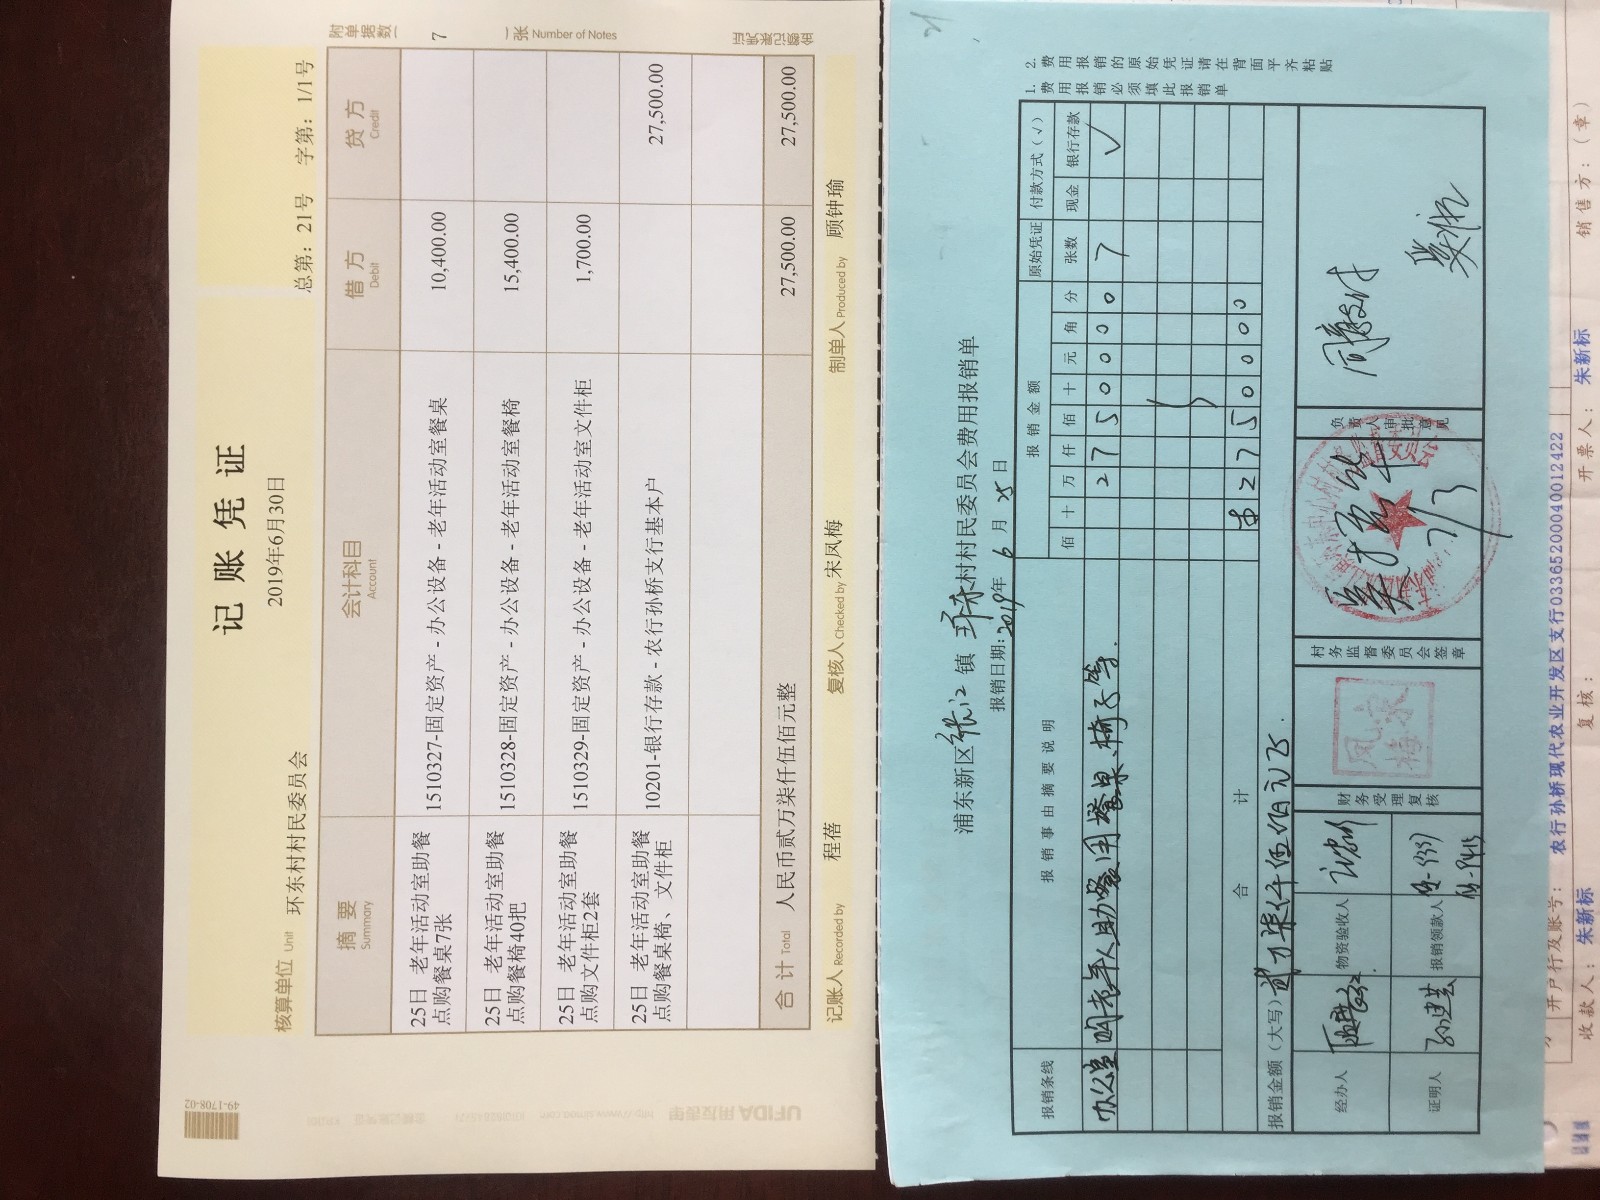 记账凭证
2019年6月30日
核算单位 Unit 环东村村民委员会
总第：21号 字第：1/1号
附单据数 7 张 Number of Notes
摘要 Summary 会计科目 Account 借方 Debit 贷方 Credit
25日 老年活动室助餐点购餐桌7张 1510327-固定资产 - 办公设备 - 老年活动室餐桌 10,400.00
25日 老年活动室助餐点购餐椅40把 1510328-固定资产 - 办公设备 - 老年活动室餐椅 15,400.00
25日 老年活动室助餐点购文件柜2套 1510329-固定资产 - 办公设备 - 老年活动室文件柜 1,700.00
25日 老年活动室助餐点购餐桌椅、文件柜 10201-银行存款 - 农行孙桥支行基本户 27,500.00
合计 Total 人民币贰万柒仟伍佰元整 27,500.00 27,500.00
记账人 Recorded by 程蓓 复核人 Checked by 宋凤梅 制单人 Produced by 顾钟瑜
49-1708-02
UFIDA 用友表单
浦东新区张江镇环东村村民委员会费用报销单
报销日期：2019年6月25日
报销条线 报销事由摘要说明 报销金额 原始凭证张数 付款方式（√）
佰 十 万 仟 佰 十 元 角 分 现金 银行存款
办公室 购老年人助餐用餐桌、椅子等. 2 7 5 0 0 0 0 7 √
合计 ¥ 2 7 5 0 0 0 0
报销金额（大写） 贰万柒仟伍佰元正
经办人 物资验收人 财务受理复核 凤宋梅 村务监督委员会签章 负责人审批意见
证明人 报销领款人
7/3
1. 费用报销必须填此报销单
2. 费用报销的原始凭证请在背面平齐粘贴
21
开户行及账号： 农行孙桥现代农业开发区支行03365200040012422
收款人： 朱新标 复核： 开票人： 朱新标 销售方：（章）